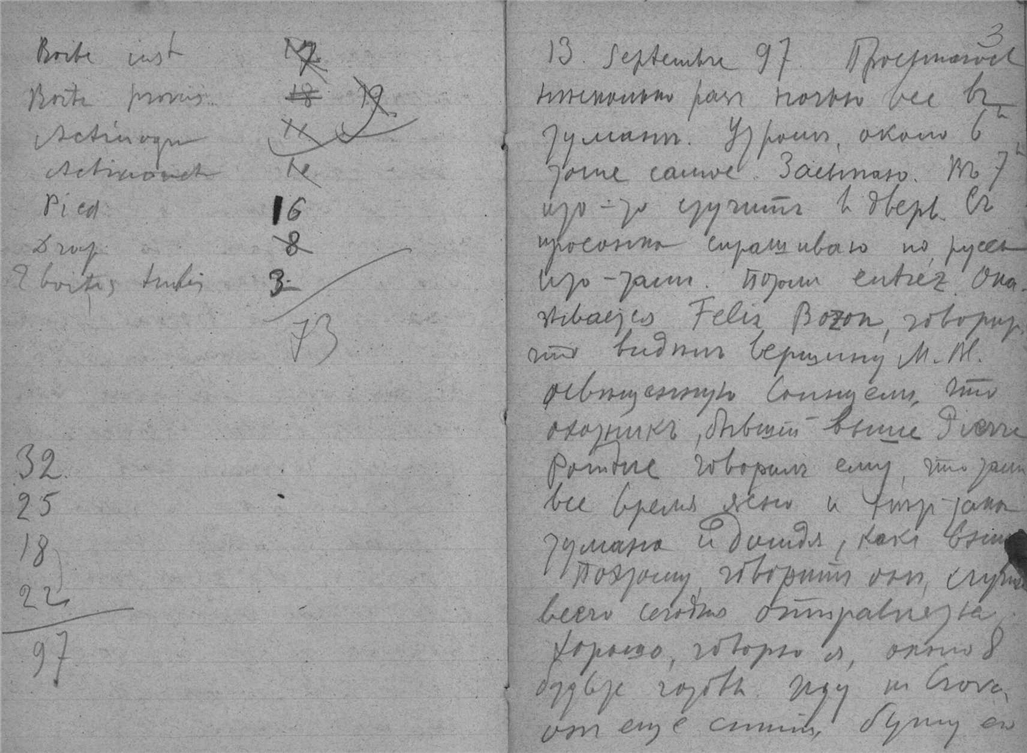 Boite inst 12
Boite provis. 18 19
Actinogr 11
Actinom 12
Pied 16
Drap 8
2 boites tubes 3
73
32
25
18
22
97
3
13. Septembre 97. Просыпаюсь
нѣсколько разъ ночью все въ
туманѣ. Утромъ, около 6 h
тоже самое. Засыпаю. Въ 7 h
кто-то стучитъ въ дверь. Съ
просонья спрашиваю по русски
кто-тамъ. Потом entrez. Ока-
зывается Felix Bozon, говоритъ,
что видѣлъ вершину М.-Б.
освѣщенную солнцемъ, что
охотникъ, бывшій выше Pierre
Pointue говорилъ ему, что тамъ
все время ясно и
тумана и дождя, какъ
Поэтому, говоритъ он,
всего сегодня отправиться.
Хорошо, говорю я, около 8
будьте готовы. Иду къ Crova,
онъ еще спитъ, бужу его